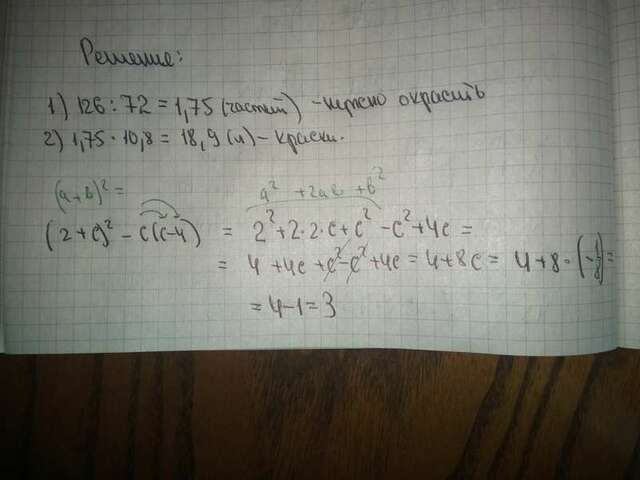 Решение:
1) 126 : 72 = 1,75 (частей) - нужно окрасить
2) 1,75 · 10,8 = 18,9 (л) - краски.
(a+b)² = a² + 2ab + b²
(2+c)² - c(c-4) = 2² + 2·2·c + c² - c² + 4c =
= 4 + 4c + c² - c² + 4c = 4 + 8c = 4 + 8 · (-1/8) =
= 4-1 = 3